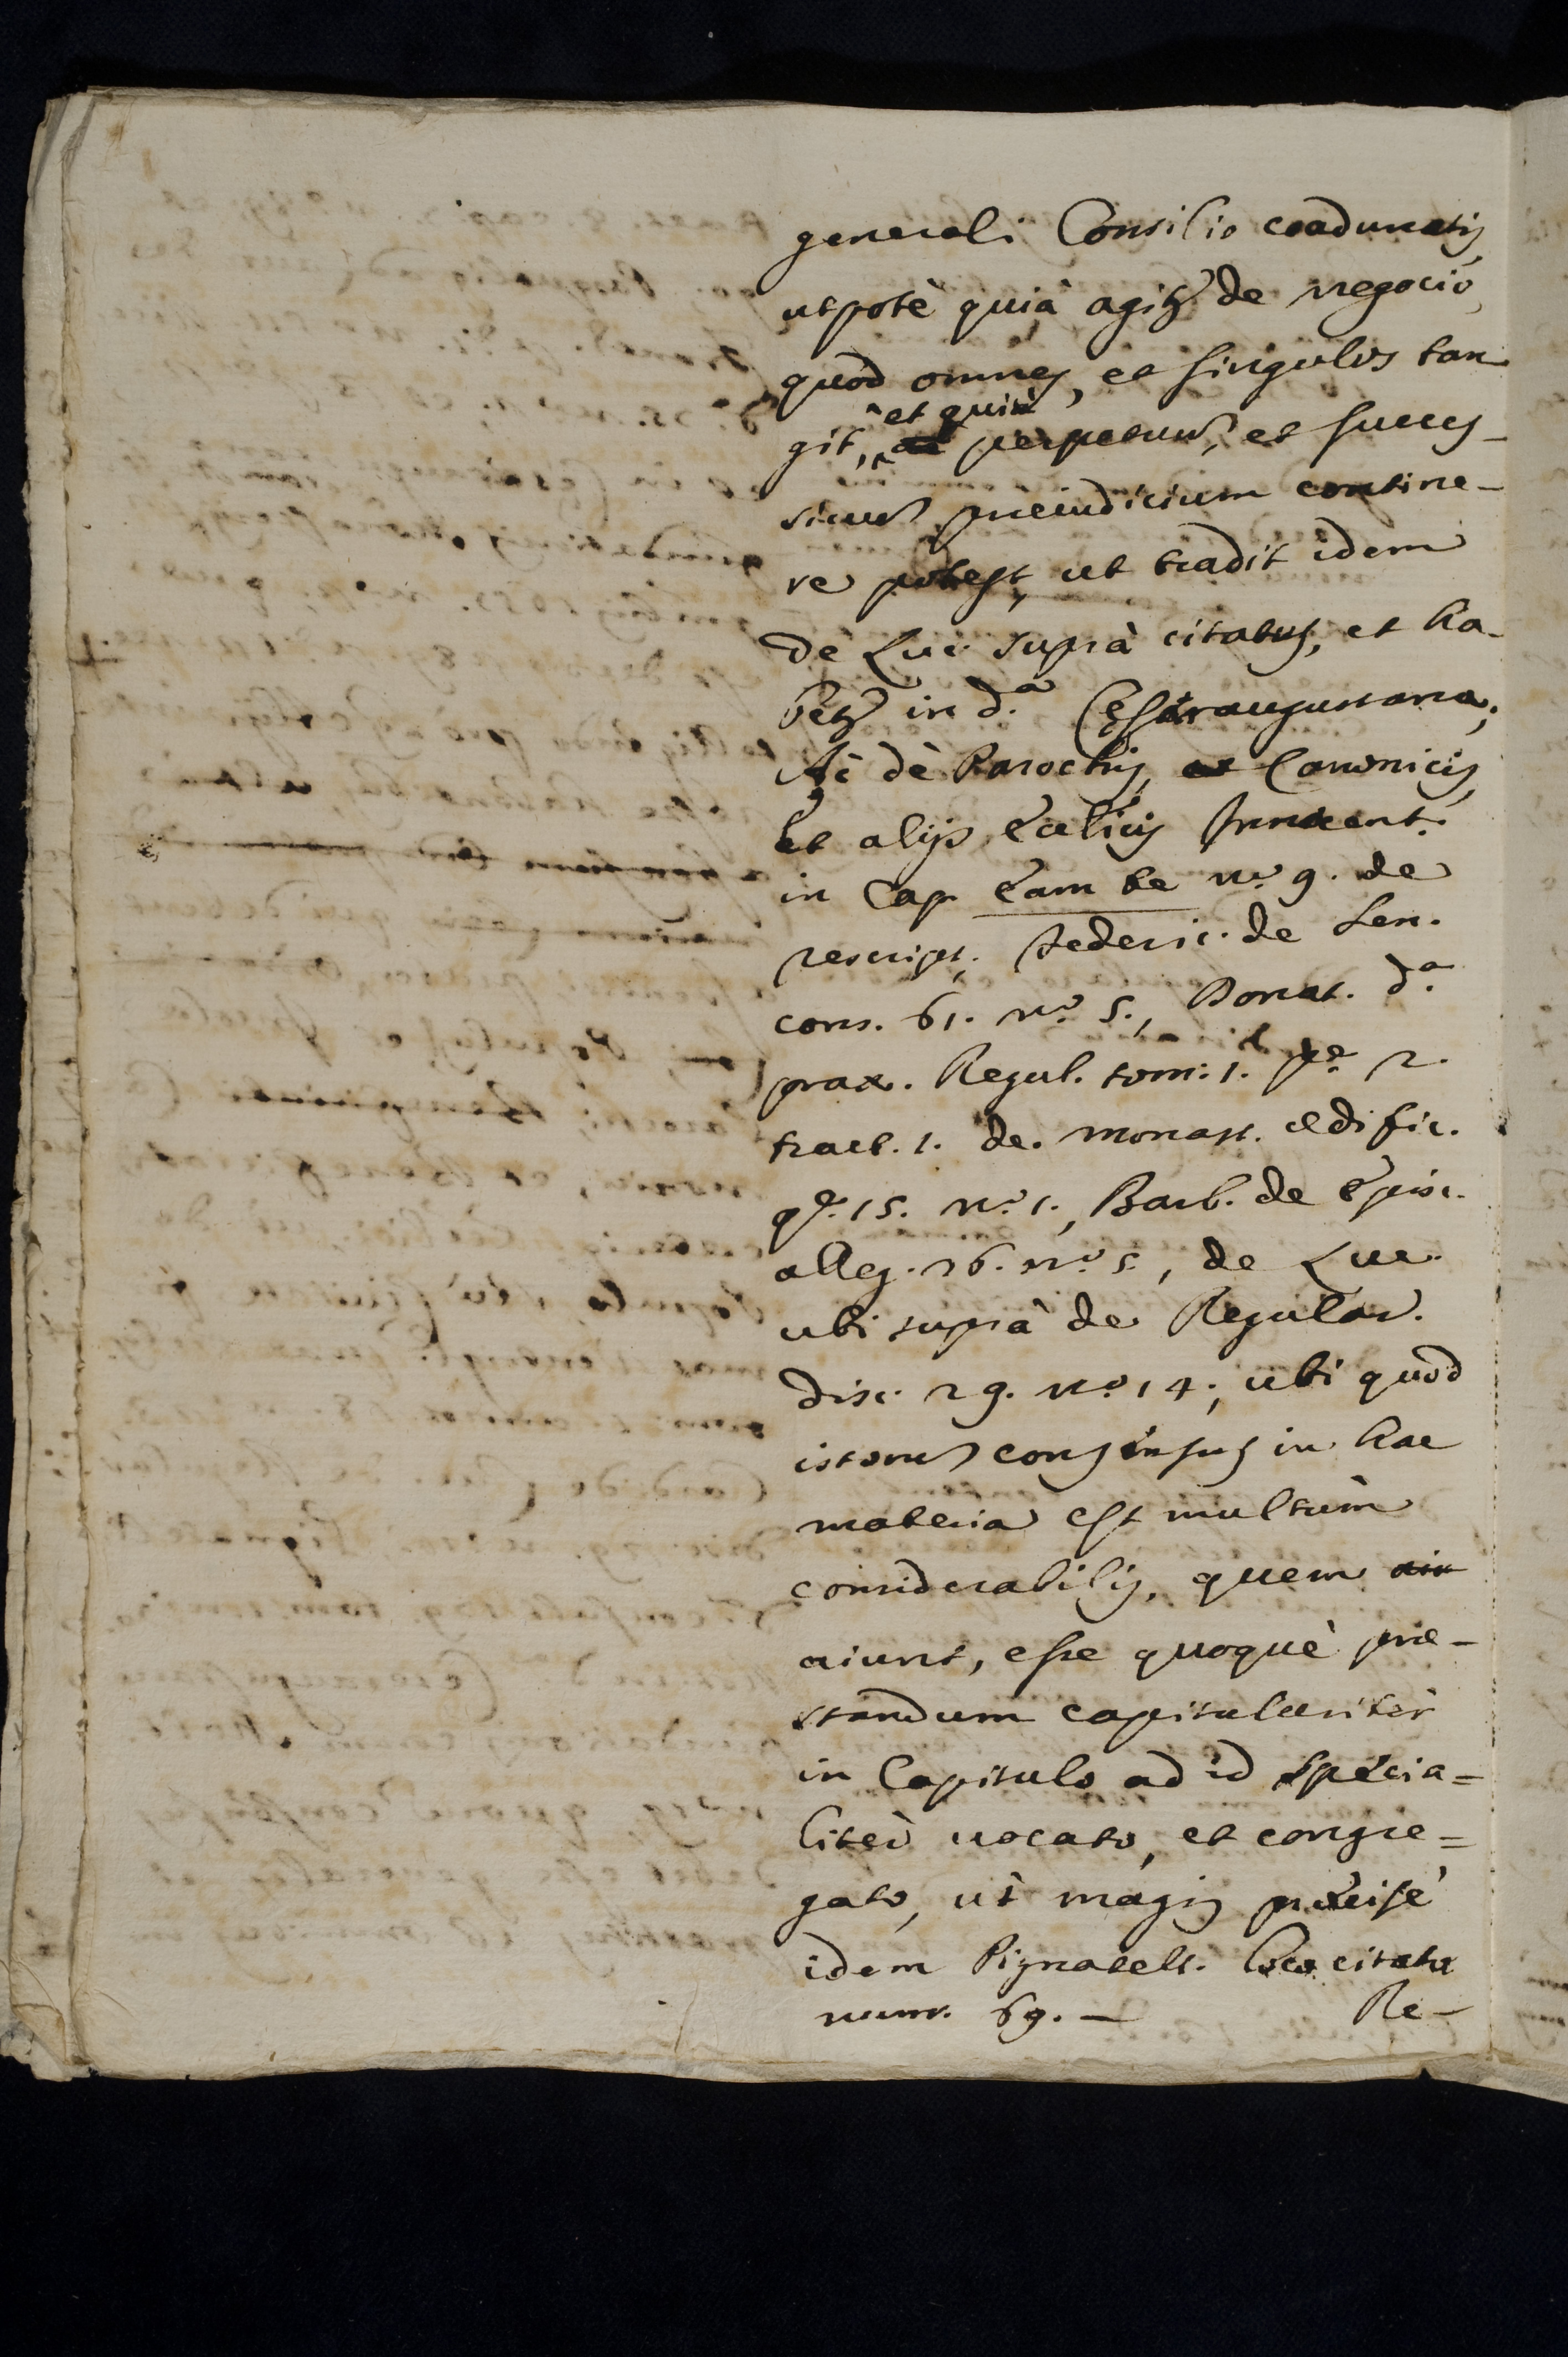 generali Consilio coadunatis,
utpotè quià agitr de negocio,
quod omnes, et singulos tan
et quià
git, perpetuum, et succes-
sivum preiudicium contine-
re potest, ut tradit idem
de Luc. suprà citatus, et ha-
betr in d.ª Cesaraugustana;
Ac dè Parochis, et Canonicis,
et alijs Ecclicis Innocent.
in Cap. eam te n.º 9. de
rescript. Federic. de Sen.
cons. 61. n.º 5., Donat. d.ª
prax. Regul. tom. 1. p.e 2.
tract. 1. de monast. edific.
q. 15. n.º 1., Barb. de Episc.
alleg. 26. n.º 5., de Luc.
ubi suprà de Regular.
disc. 29. n.º 14., ubi quod
istorum consensus in hac
materia est multùm
considerabilis, quem
aiunt, esse quoquè pre-
standum capitulariter
in Capitulo ad id specia=
liter vocato, et congre=
gato, ut magis precisè
idem Pignatell. loco citato
num. 69. - Re-